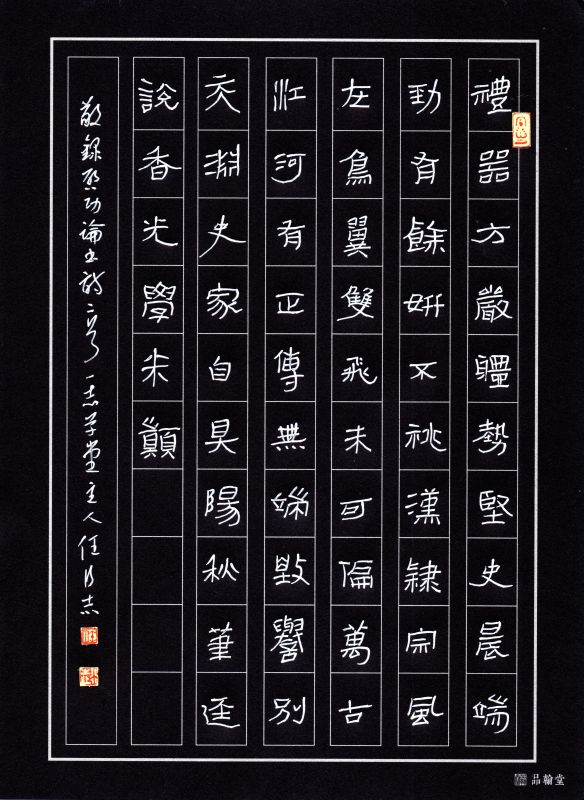 禮器方嚴疆勢堅史晨端
勁有餘妍不祧漢隸宗風
在鳥翼雙飛未可偏萬古
江河有正傳無端毀譽別
天淵史家自具陽秋筆逕
說香光學米顛
敬錄啟功論書詩二首 一志學堂主人任志
品翰堂